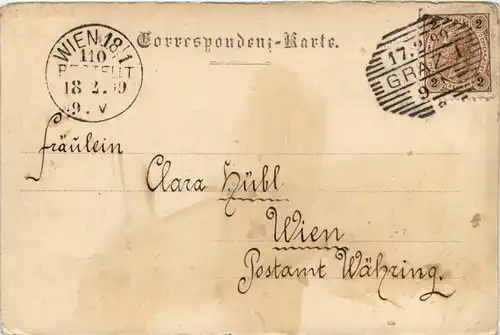 Correspondenz-Karte.
WIEN 18/1
110
BESTELLT
18 2. 99
9. V
17.2.99
GRAZ 1
9
2
2 2
Fräulein
Clara Hübl
Wien
Postamt Währing.